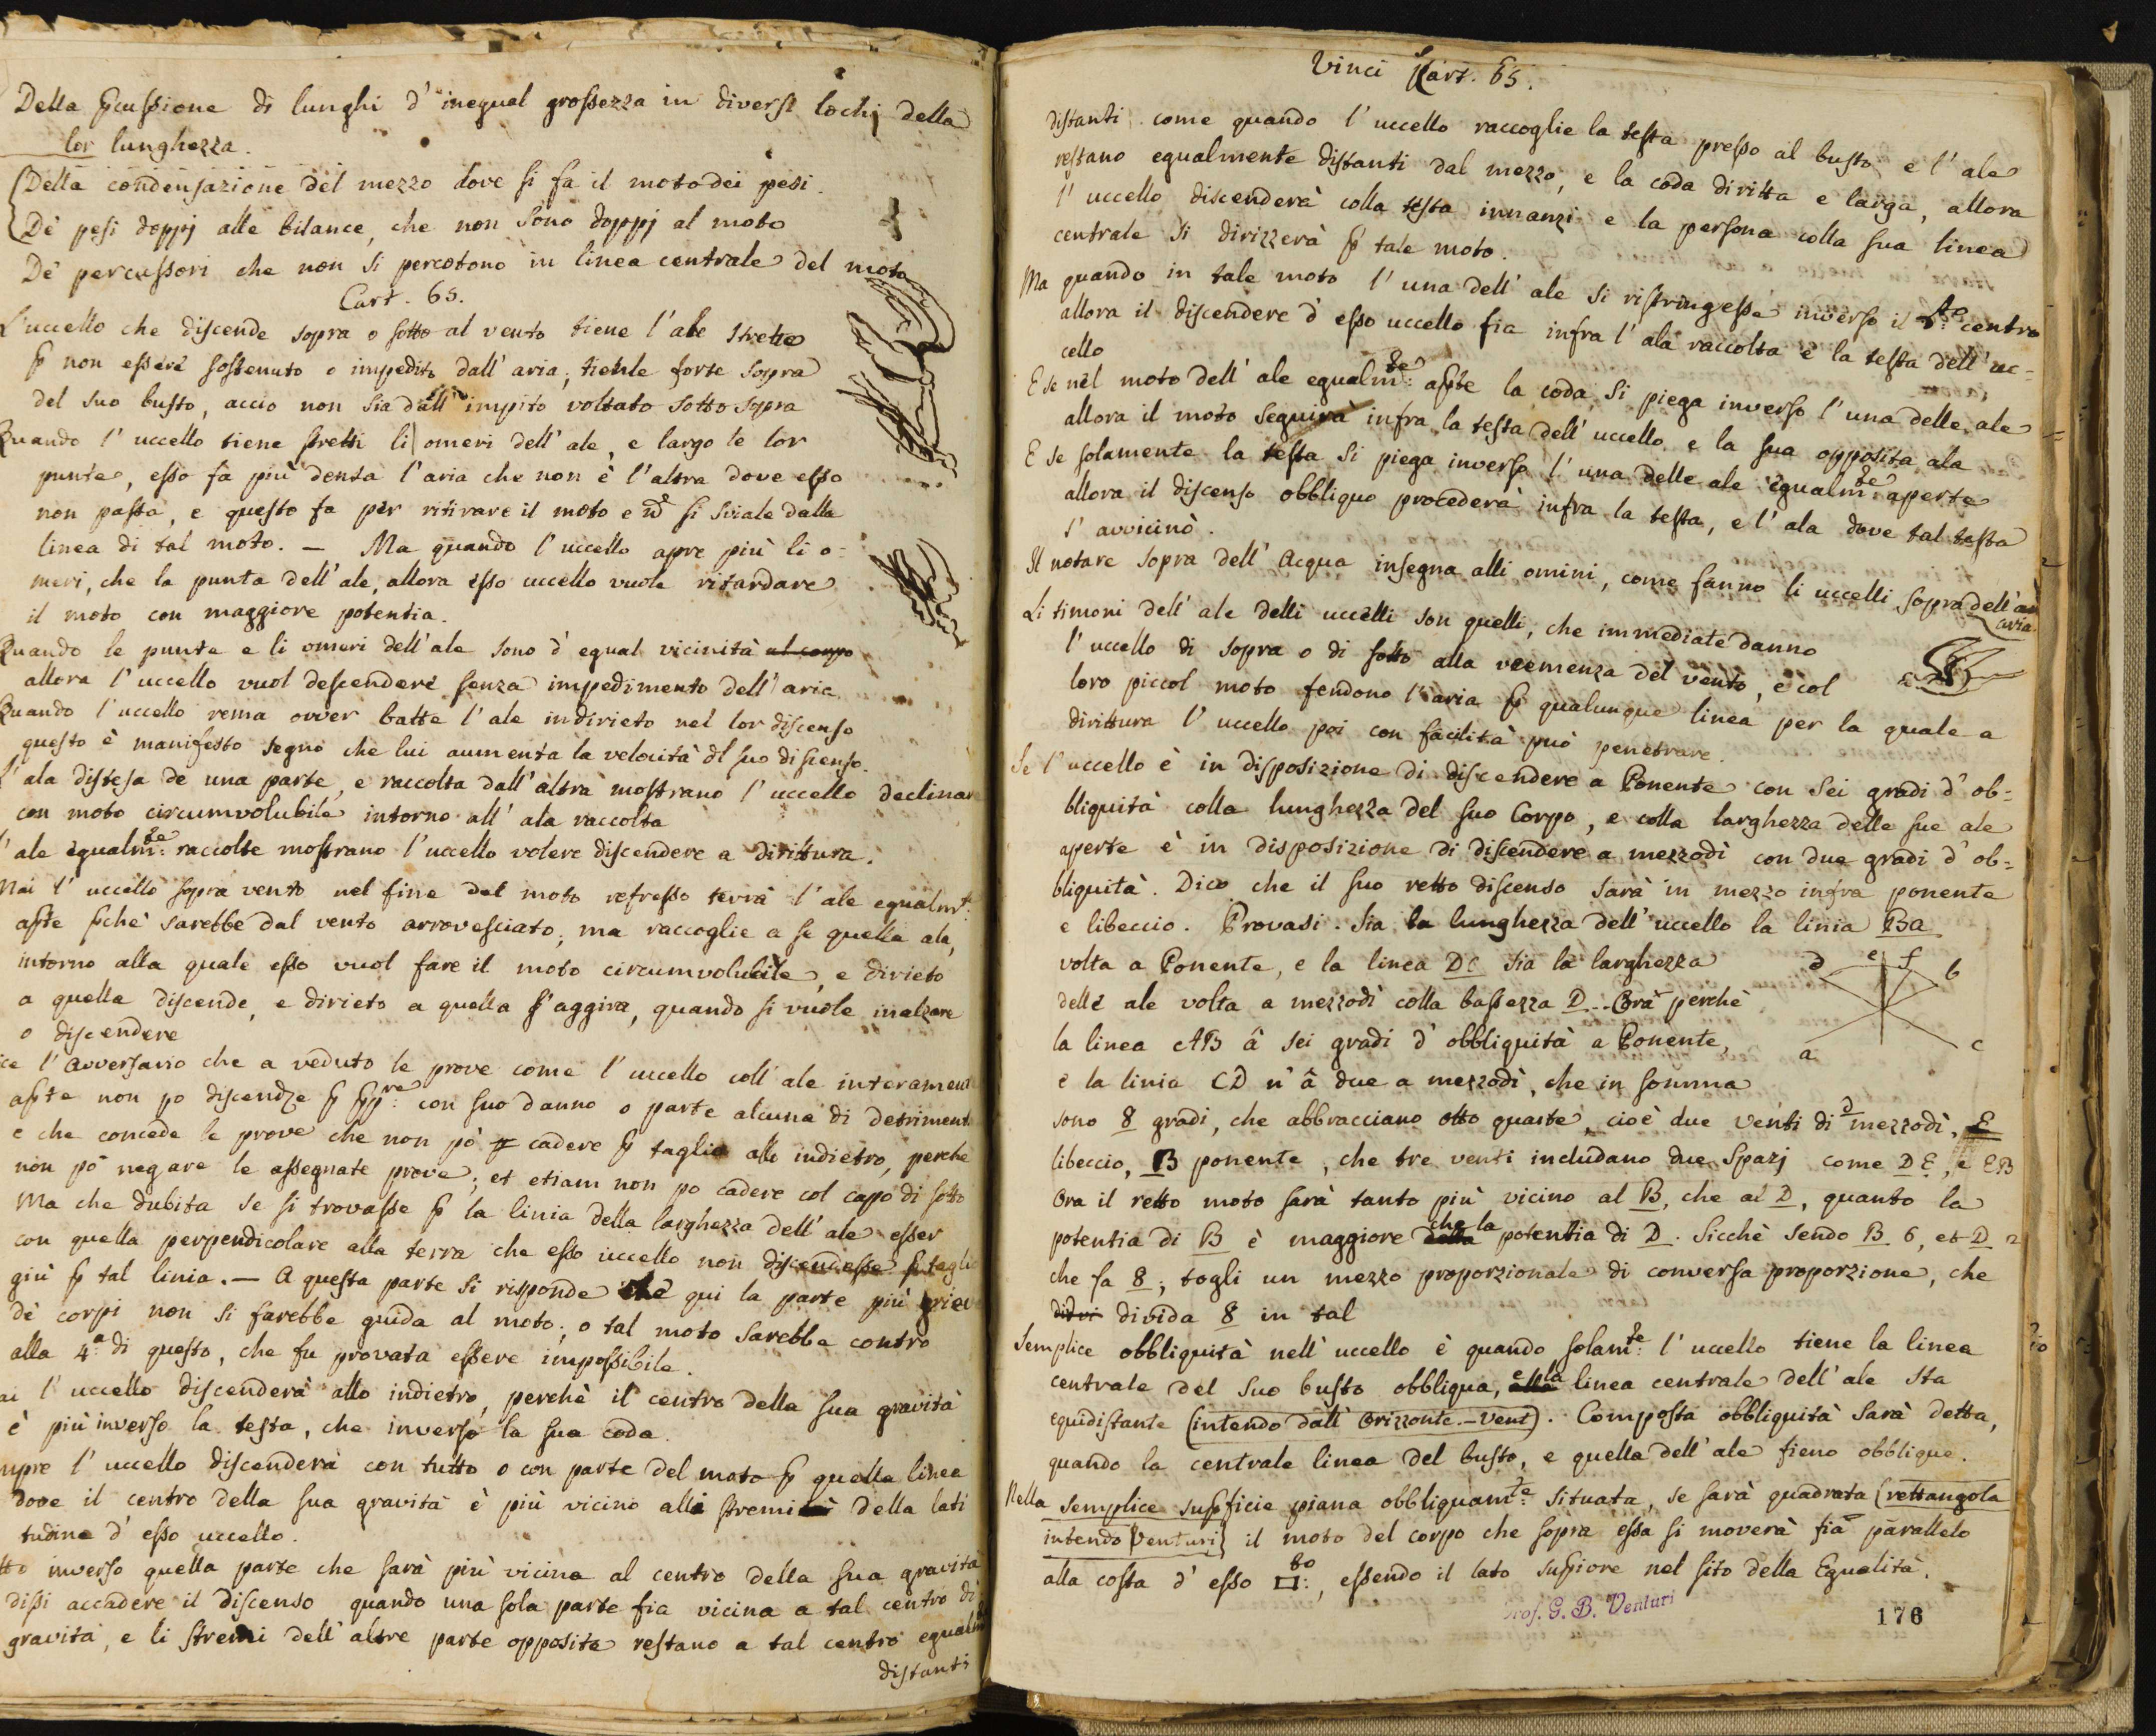 Della ꝑcussione di lunghi d' inegual grossezza in diversi lochj della
lor lunghezza.
Della condensazione del mezzo dove si fa il moto dei pesi.
De' pesi doppj alle bilance, che non sono doppj al moto
De' percussori che non si percotono in linea centrale del moto
Cart. 65.
L'uccello che discende sopra o sotto al vento tiene l'ale strette
ꝑ non essere sostenuto o impedito dall'aria; tienle forte sopra
del suo busto, accio non sia dall' impito voltato sotto sopra
Quando l'uccello tiene stretti li omeri dell'ale, e largo le lor
punte, esso fa più densa l'aria che non è l'altra dove esso
non passa, e questo fa per ritirare il moto e si sviale dalla
linea di tal moto. — Ma quando l'uccello apre più li o=
meri, che la punta dell'ale, allora esso uccello vuole ritardare
il moto con maggiore potentia.
Quando le punte e li omeri dell'ale sono d'egual vicinità al corpo
allora l'uccello vuol descendere senza impedimento dell'aria
Quando l'uccello rema over batte l'ale indirieto nel lor discenso
questo è manifesto segno che lui aumenta la velocità dl suo discenso.
L'ala distesa de una parte, e raccolta dall'altra mostrano l'uccello declinare
con moto circumvolubile intorno all'ala raccolta
l'ale egualm.te raccolte mostrano l'uccello volere discendere a dirittura.
Mai l'uccello sopra vento nel fine del moto refresso terrà l'ale egualm.t
aꝑte ꝑchè sarebbe dal vento arrovesciato; ma raccoglie a se quella ala,
intorno alla quale esso vuol fare il moto circumvolubile, e dirieto
a quella discende, e dirieto a quella s'aggira, quando si vuole inalzare
o discendere
ce l'Avversario che a veduto le prove come l'uccello coll'ale interament
aꝑte non po discendꝛe ꝑ con suo danno o parte alcuna di detriment
e che concede le prove che non pò cadere ꝑ taglio allo indietro, perche
non pò negare le assegnate prove; et etiam non po cadere col capo di sotto
Ma che dubita se si trovasse ꝑ la linia della larghezza dell'ale esser
con quella perpendicolare alla terra che esso uccello non discendesse ꝑ taglio
giù ꝑ tal linia. — A questa parte si risponde che qui la parte più grieve
de' corpi non si farebbe guida al moto; o tal moto sarebbe contro
alla 4.a di questo, che fu provata essere impossibile.
ai l'uccello discenderà allo indietro, perchè il centro della sua gravità
è più inverso la testa, che inverso la sua coda.
mpre l'uccello discenderà con tutto o con parte del moto ꝑ quella linea
dove il centro della sua gravità è più vicino alli stremi della lati
tudine d'esso uccello.
tto inverso quella parte che sarà più vicina al centro della sua gravità
dissi accadere il discenso quando una sola parte fia vicina a tal centro di
gravità, e li stremi dell'altre parte opposita restano a tal centro egualm
distanti
Vinci Cart. 65.
distanti come quando l'uccello raccoglie la testa presso al busto, e l'ale
restano egualmente distanti dal mezzo, e la coda diritta e larga, allora
l'uccello discenderà colla testa innanzi e la persona colla sua linea
centrale si dirizzerà ꝑ tale moto.
Ma quando in tale moto l'una dell'ale si ristringesse inverso il centro
allora il discendere d'esso uccello fia infra l'ala raccolta e la testa dell'uc=
cello
E se nel moto dell'ale egualm.te aꝑte la coda si piega inverso l'una delle ale
allora il moto seguirà infra la testa dell'uccello e la sua opposita ala
E se solamente la testa si piega inverso l'una delle ale egualm.te aperte
allora il discenso obbliquo procederà infra la testa, e l'ala dove tal testa
s'avvicinò.
Il notare sopra dell'Acqua insegna alli omini, come fanno li uccelli sopra dell'
aria.
Li timoni dell'ale delli uccelli son quelli, che immediate danno
l'uccello di sopra o di sotto alla veemenza del vento, e col
loro piccol moto fendono l'aria ꝑ qualunque linea per la quale a
dirittura l'uccello poi con facilità può penetrare.
Se l'uccello è in disposizione di discendere a Ponente con sei gradi d'ob=
bliquità colla lunghezza del suo Corpo, e colla larghezza delle sue ale
aperte è in disposizione di discendere a mezzodì con due gradi d'ob=
bliquità. Dico che il suo retto discenso sarà in mezzo infra ponente
e libeccio. Provasi. Sia la lunghezza dell'uccello la linia Ba
volta a Ponente, e la linea Dc sia la larghezza
delle ale volta a mezzodì colla bassezza D... Ora perchè
la linea AB â sei gradi d'obbliquità a Ponente,
e la linia CD n'â due a mezzodì, che in somma
d e f b
a c
sono 8 gradi, che abbracciano otto quarte, cioè due venti di D mezzodì, E
libeccio, B ponente, che tre venti includano due Spazj come DE, e EB
Ora il retto moto sarà tanto più vicino al B, che al D, quanto la
potentia di B è maggiore della che la potentia di D. Sicchè sendo B 6, et D 2
che fa 8; togli un mezzo proporzionale di conversa proporzione, che
divida 8 in tal
Semplice obbliquità nell'uccello è quando solam.te l'uccello tiene la linea
centrale del suo busto obbliqua, e la linea centrale dell'ale sta
equidistante (intendo dall'Orizzonte.—Vent). Composta obbliquità sarà detta,
quando la centrale linea del busto, e quella dell'ale fieno obblique.
Nella semplice suꝑficie piana obbliquam.te situata, se sarà quadrata (rettangola
intendo Venturi) il moto del corpo che sopra essa si moverà fia parallelo
alla costa d'esso □.to, essendo il lato suꝑiore nel sito della Egualità.
Prof. G. B. Venturi
176